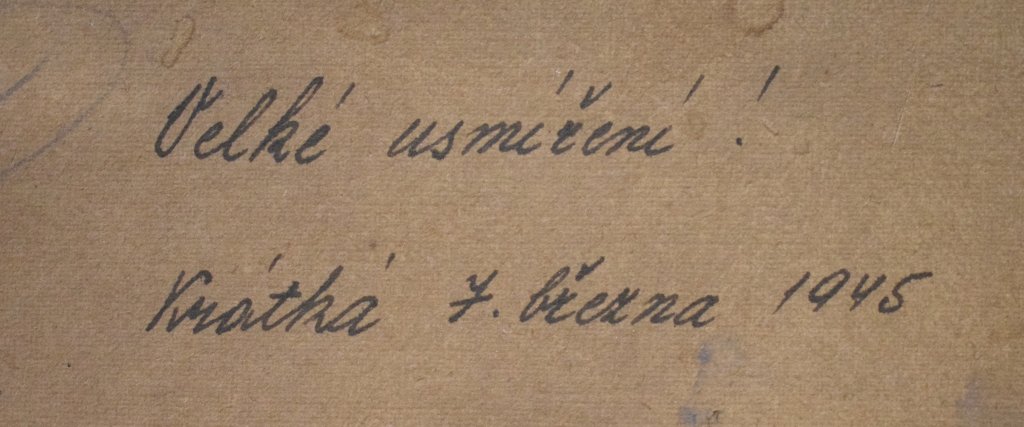 Velké usmíření !
Krátká 7. března 1945